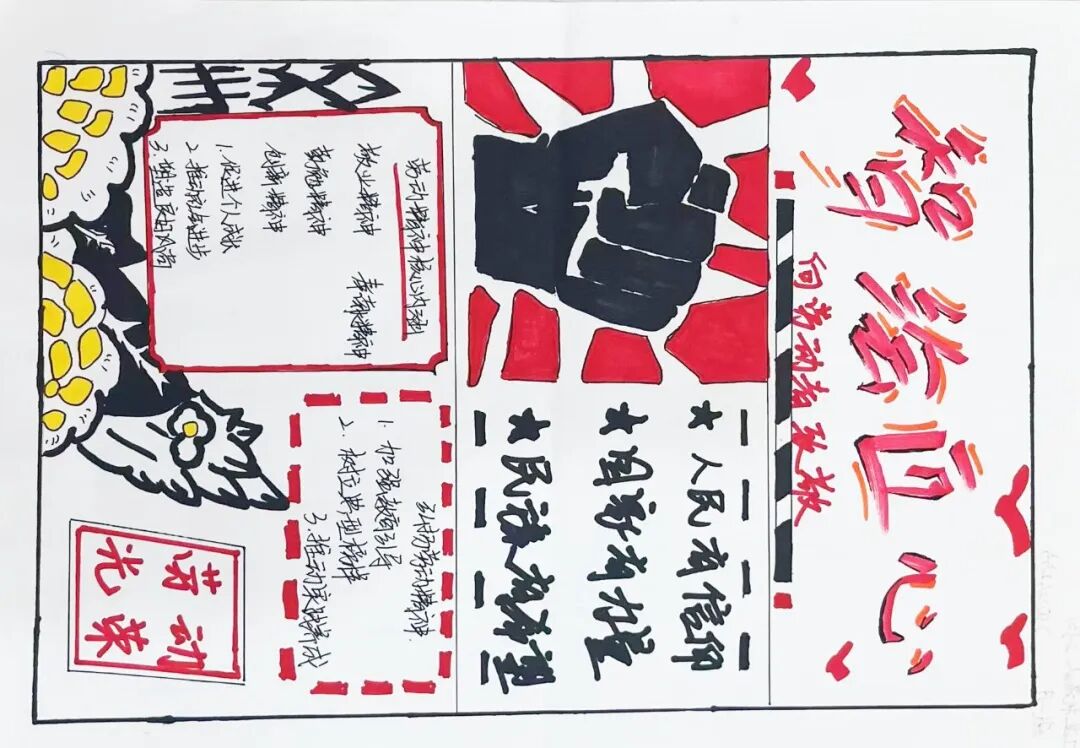 智绘匠心
向劳动者致敬
★人民有信仰
★国家有力量
★民族有希望
劳动精神核心内涵
敬业精神 奉献精神
精神
创新精神
1.促进个人成长
2.推动社会进步
3.塑造良好风尚
弘扬劳动精神
1.加强教育引导
2.树立典型榜样
3.推动实践养成
劳动
光荣